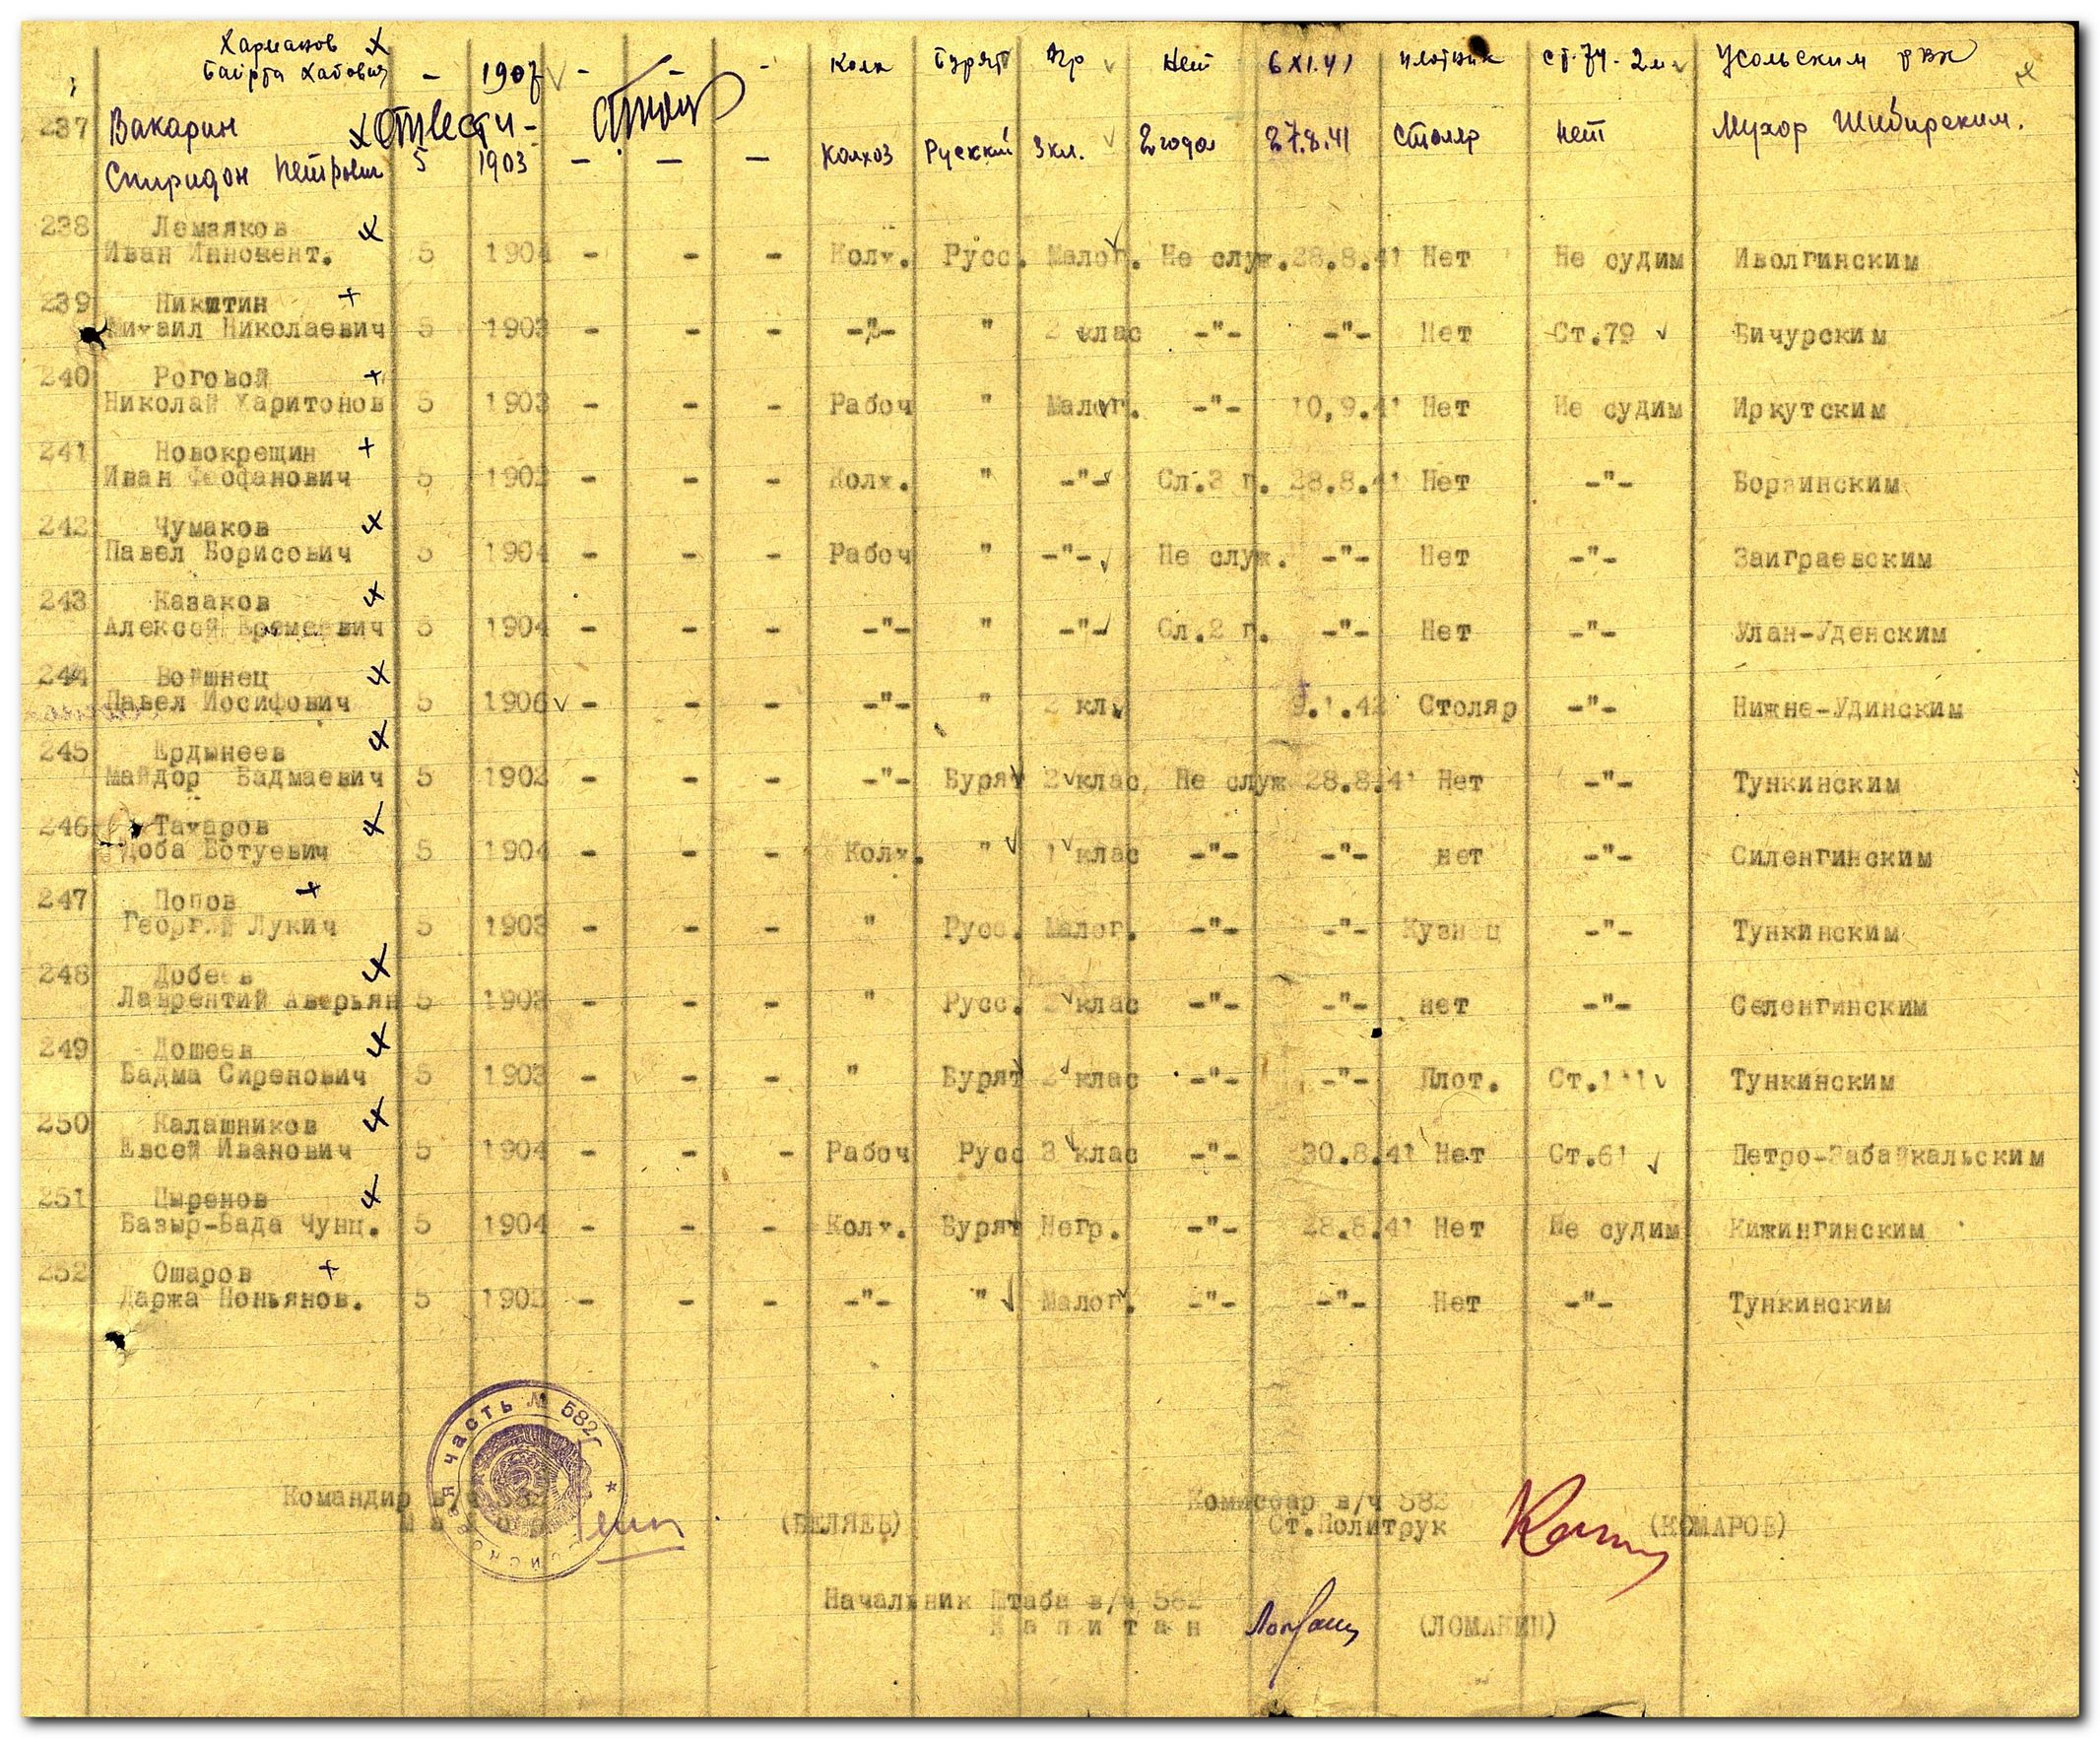 Харманов х
Байрта Хабович - 1907 - - - Колх Бурят Нгр Нет 6 XI.41 плотник ст.74. 2м Усольским рвк
237 Вакарин х
Спиридон Петрович 5 1903 - - - Колхоз Русский 3кл. 2 года 27.8.41 Столяр нет Мухор Шибирским.
238 Лемзяков х
Иван Иннокент. 5 1904 - - - Колх. Русс. Малог. Не служ. 28.8.41 Нет Не судим Иволгинским
239 Никитин +
Михаил Николаевич 5 1903 - - - -"- " 2 клас -"- -"- Нет Ст.79 Бичурским
240 Роговой +
Николай Харитонов 5 1903 - - - Рабоч " Малог. -"- 10.9.41 Нет Не судим Иркутским
241 Новокрещин +
Иван Феофанович 5 1902 - - - Колх. " -"- Сл.3 г. 28.8.41 Нет -"- Борзинским
242 Чумаков х
Павел Борисович 5 1904 - - - Рабоч " -"- Не служ. -"- Нет -"- Заиграевским
243 Казаков х
Алексей Еремеевич 5 1904 - - - -"- " -"- Сл.2 г. -"- Нет -"- Улан-Уденским
244 Войшнец х
Павел Иосифович 5 1906 - - - -"- " 2 кл. 9.1.42 Столяр -"- Нижне-Удинским
245 Ердынеев х
Майдор Бадмаевич 5 1902 - - - -"- Бурят 2 клас Не служ 28.8.41 Нет -"- Тункинским
246 Тахаров х
Доба Ботуевич 5 1904 - - - Колх. " 1 клас -"- -"- нет -"- Силенгинским
247 Попов +
Георгий Лукич 5 1903 - - - " Русс. Малог. -"- -"- Кузнец -"- Тункинским
248 Добеев х
Лаврентий Аверьян 5 1903 - - - " Русс. 2 клас -"- -"- нет -"- Селенгинским
249 Дошеев х
Бадма Сиренович 5 1903 - - - " Бурят 2 клас -"- -"- Плот. Ст.111 Тункинским
250 Калашников х
Евсей Иванович 5 1904 - - - Рабоч Русс 3 клас -"- 30.8.41 Нет Ст.61 Петро-Забайкальским
251 Цыренов х
Базыр-Бада Чунц. 5 1904 - - - Колх. Бурят Негр. -"- 28.8.41 Нет Не судим Кижингинским
252 Ошаров +
ДаржаНоньянов. 5 1902 - - - -"- " Малог. -"- -"- Нет -"- Тункинским
часть № 582
Командир в/ч 582
Майор (БЕЛЯЕВ)
Комиссар в/ч 582
Ст.Политрук (КОМАРОВ)
Начальник Штаба в/ч 582
Капитан (ЛОМАКИН)